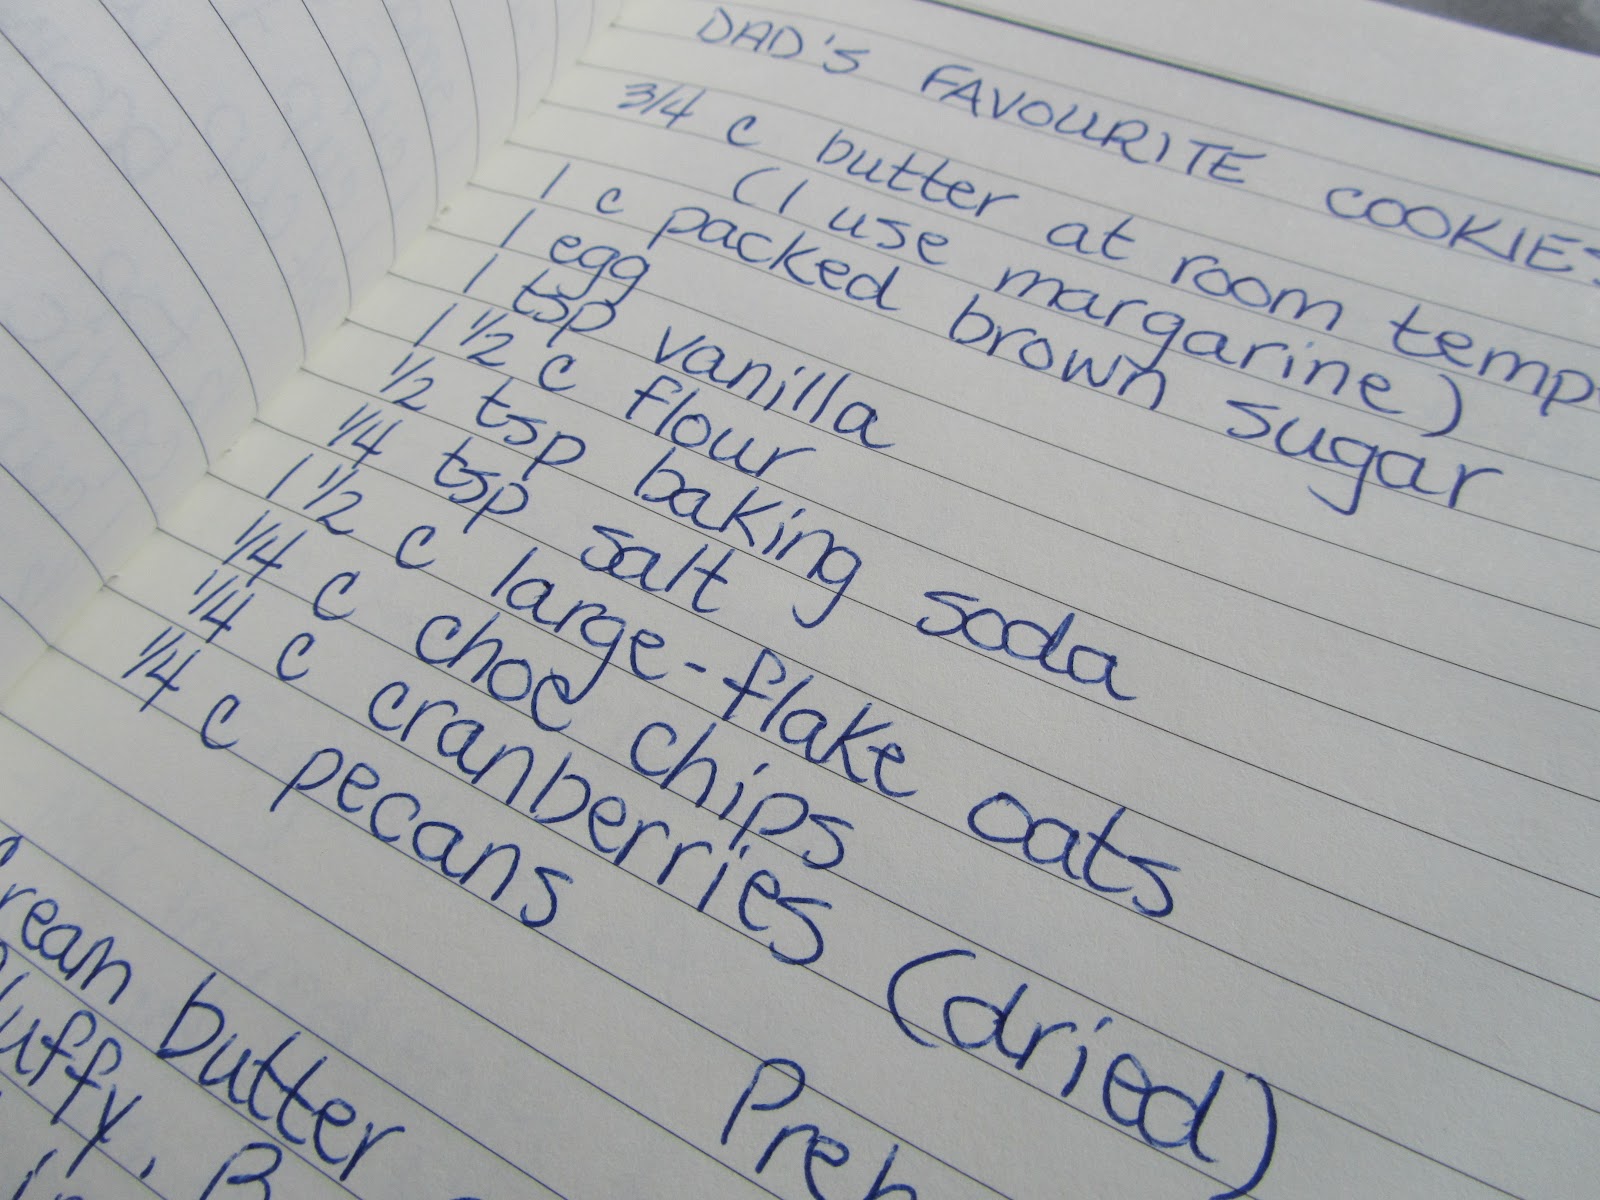 DAD'S FAVOURITE COOKIES
3/4 c butter at room temp
(I use margarine)
1 c packed brown sugar
1 egg
1 tsp vanilla
1 1/2 c flour
1/2 tsp baking soda
1/4 tsp salt
1 1/2 c large-flake oats
1/4 c choc chips
1/4 c cranberries (dried)
1/4 c pecans
Preh
Cream butter
fluffy. B